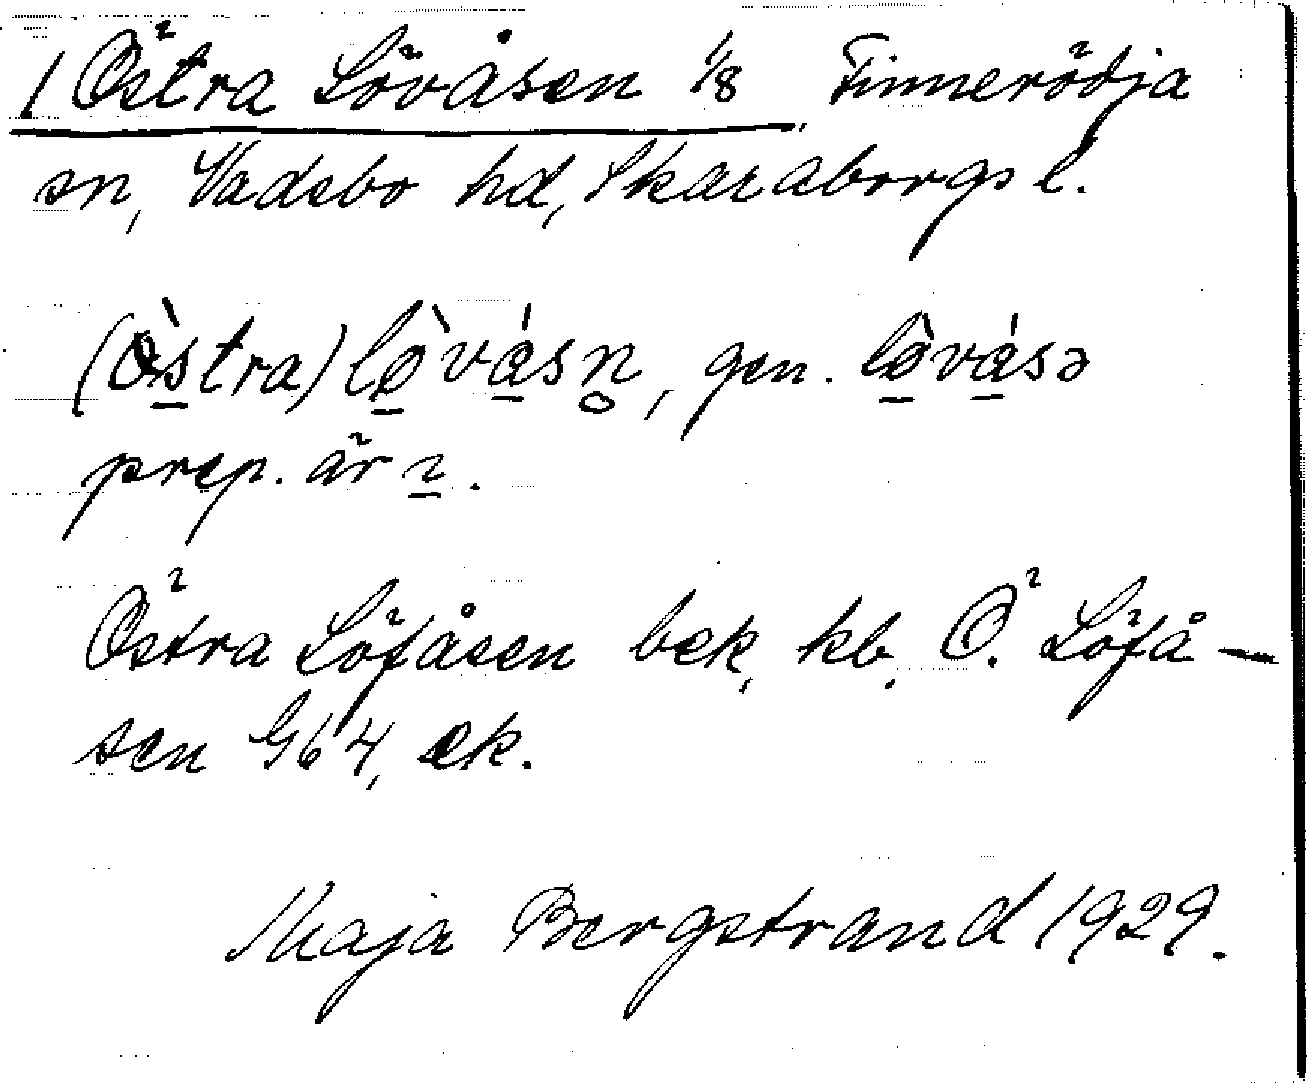 1 Östra Lövåsen 1/8 Finnerödja
sn, Vadsbo hd, Skaraborgs l.
(ò̀s̲tra) lø̲̀vá̲sn̥, gen. lø̲̀vá̲sə
prep. är ı̲.
Östra Löfåsen bek, kb. Ö. Löfå-
sen G64, ek.
Maja Bergstrand 1929.